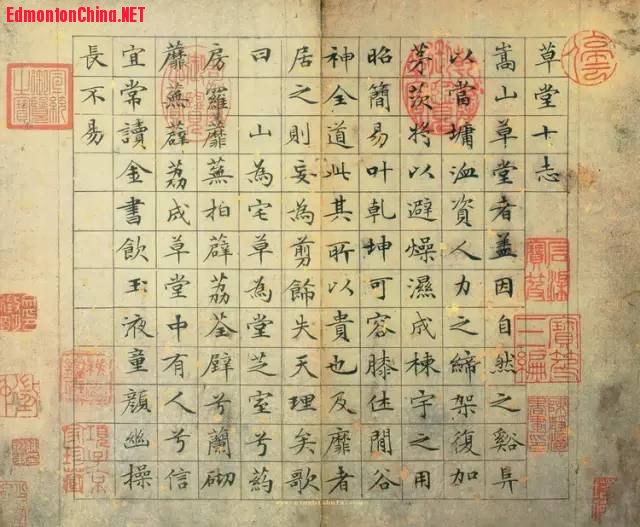 EdmontonChina.NET
草堂十志
嵩山草堂者盖因自然之谿阜
以當墉洫資人力之締架復加
茅茨將以避燥濕成棟宇之用
昭簡易叶乾坤可容膝休閒谷
神全道此其所以貴也及靡者
居之則妄為剪餙失天理矣歌
曰 山為宅草為堂芝室兮葯
房羅蘼蕪拍薜荔荃壁兮蘭砌
蘼蕪薜荔成草堂中有人兮信
宜常讀金書飲玉液童顏幽操
長不易
石渠寶笈
寶笈三編
宣統御覽之寶
項子京家珍藏